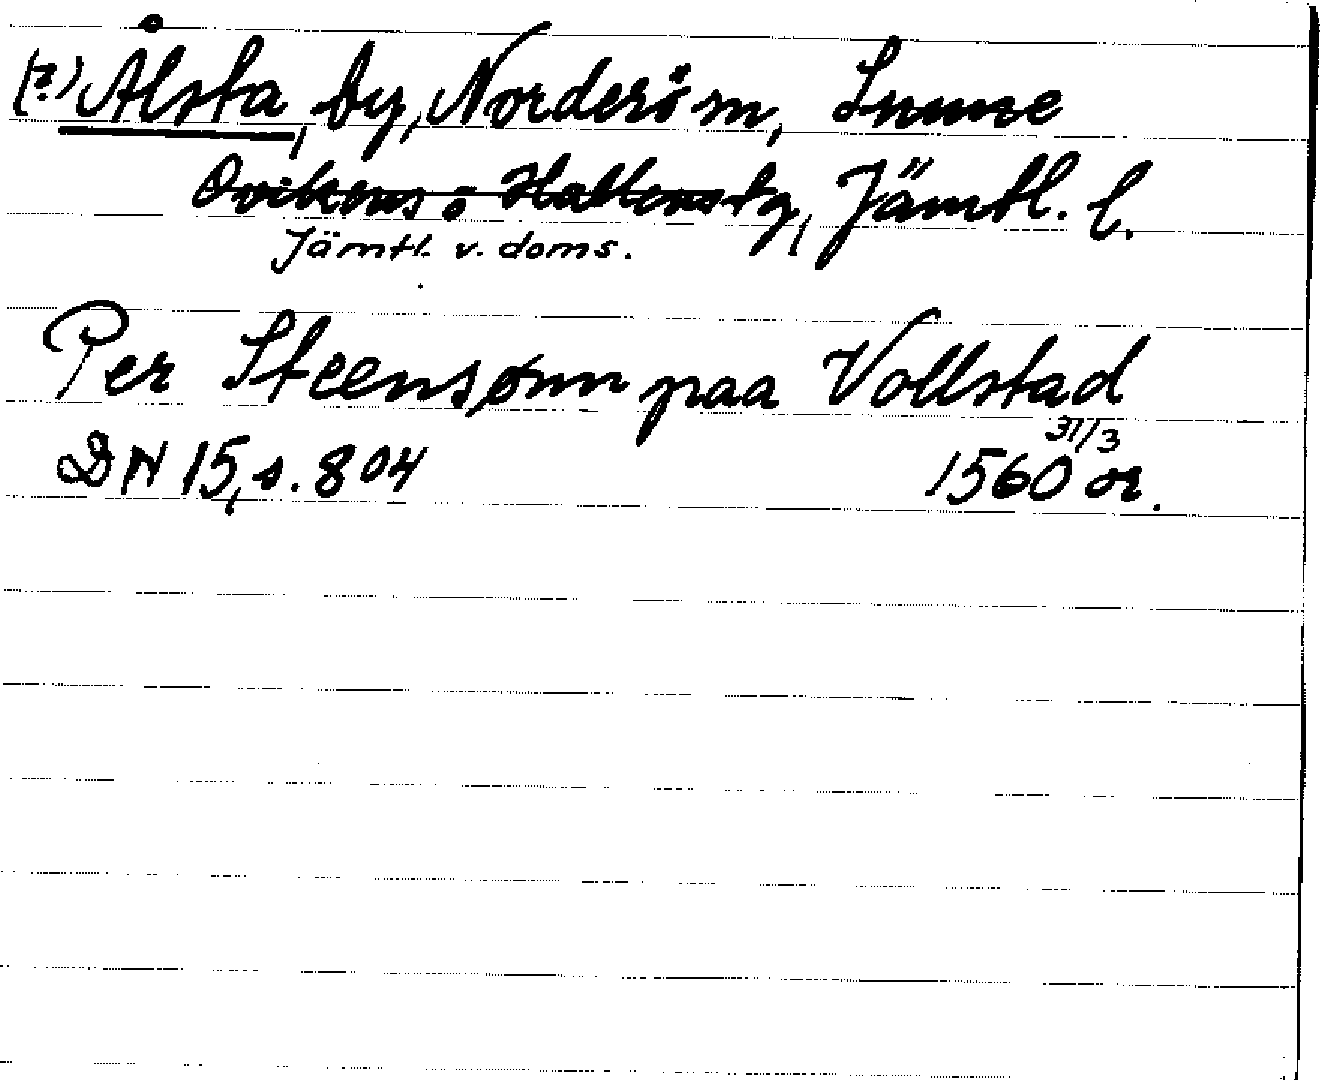 (?) Ålsta, by, Norderöm, Sunne
Ovikens o Hallens tg, Jämtl. l.
Jämtl. v. doms.
Per Steensønn paa Vollstad
31/3
DN 15, s. 804 1560 or.